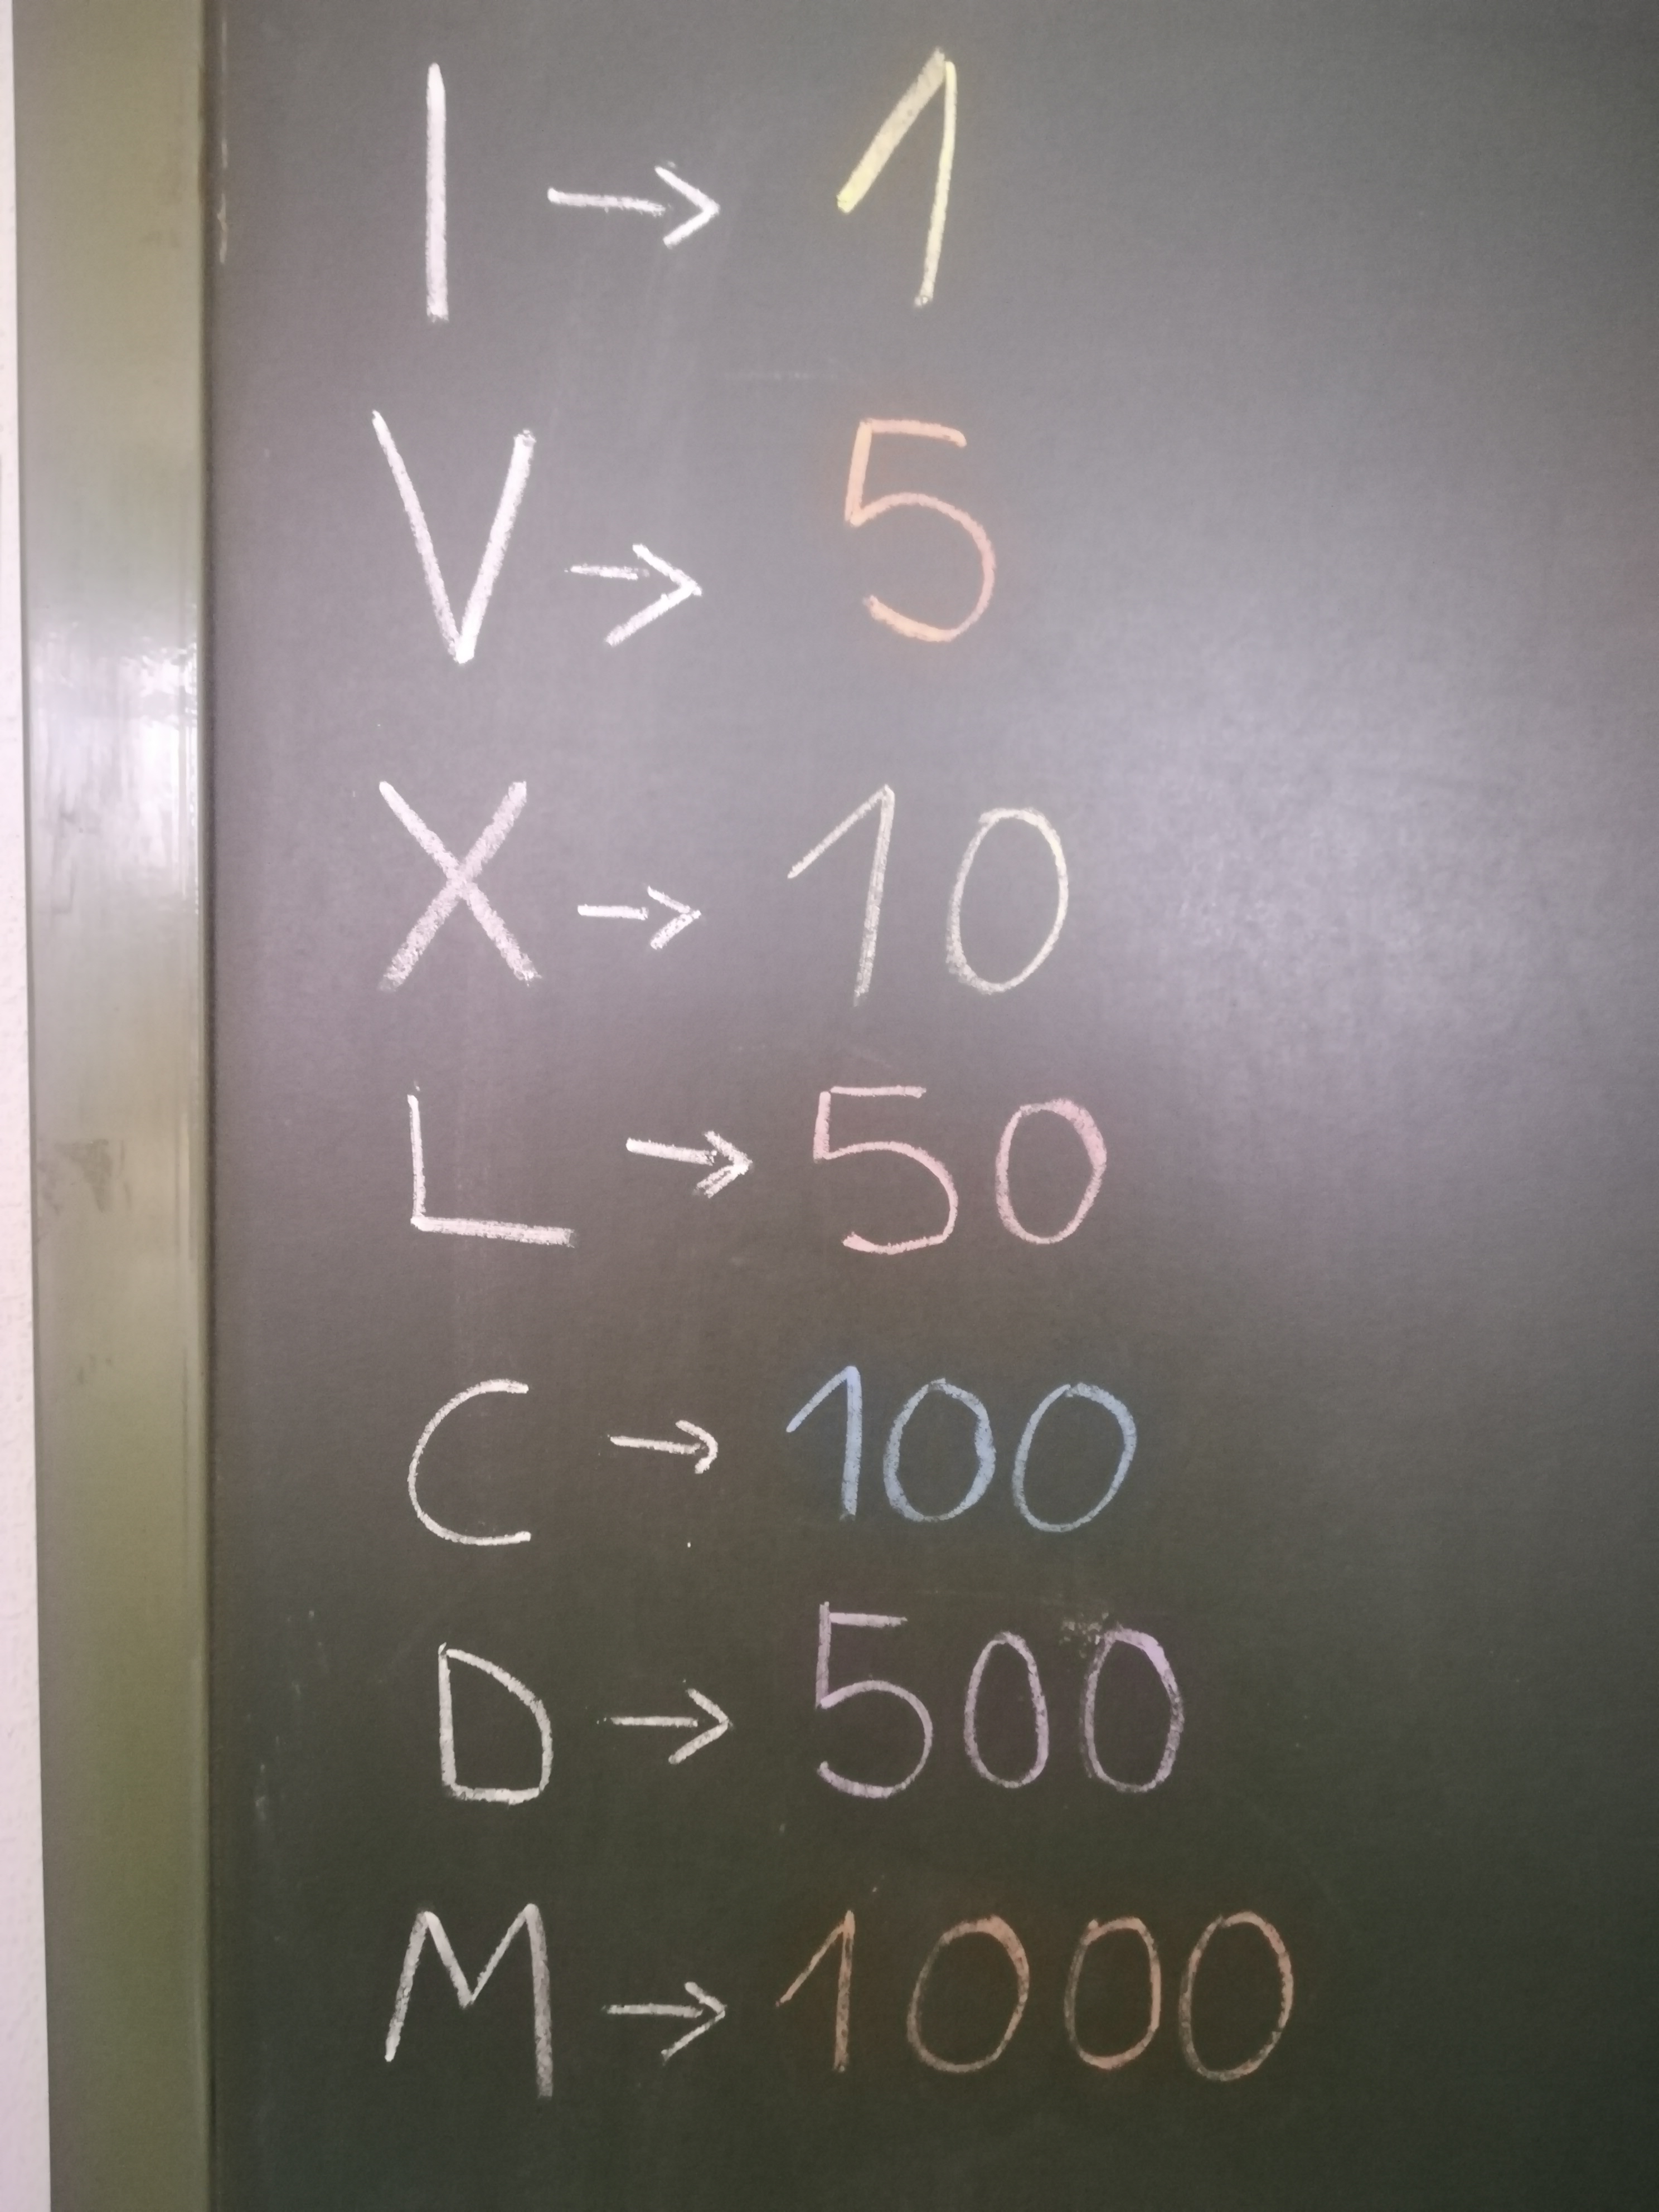 I → 1
V → 5
X → 10
L → 50
C → 100
D → 500
M → 1000